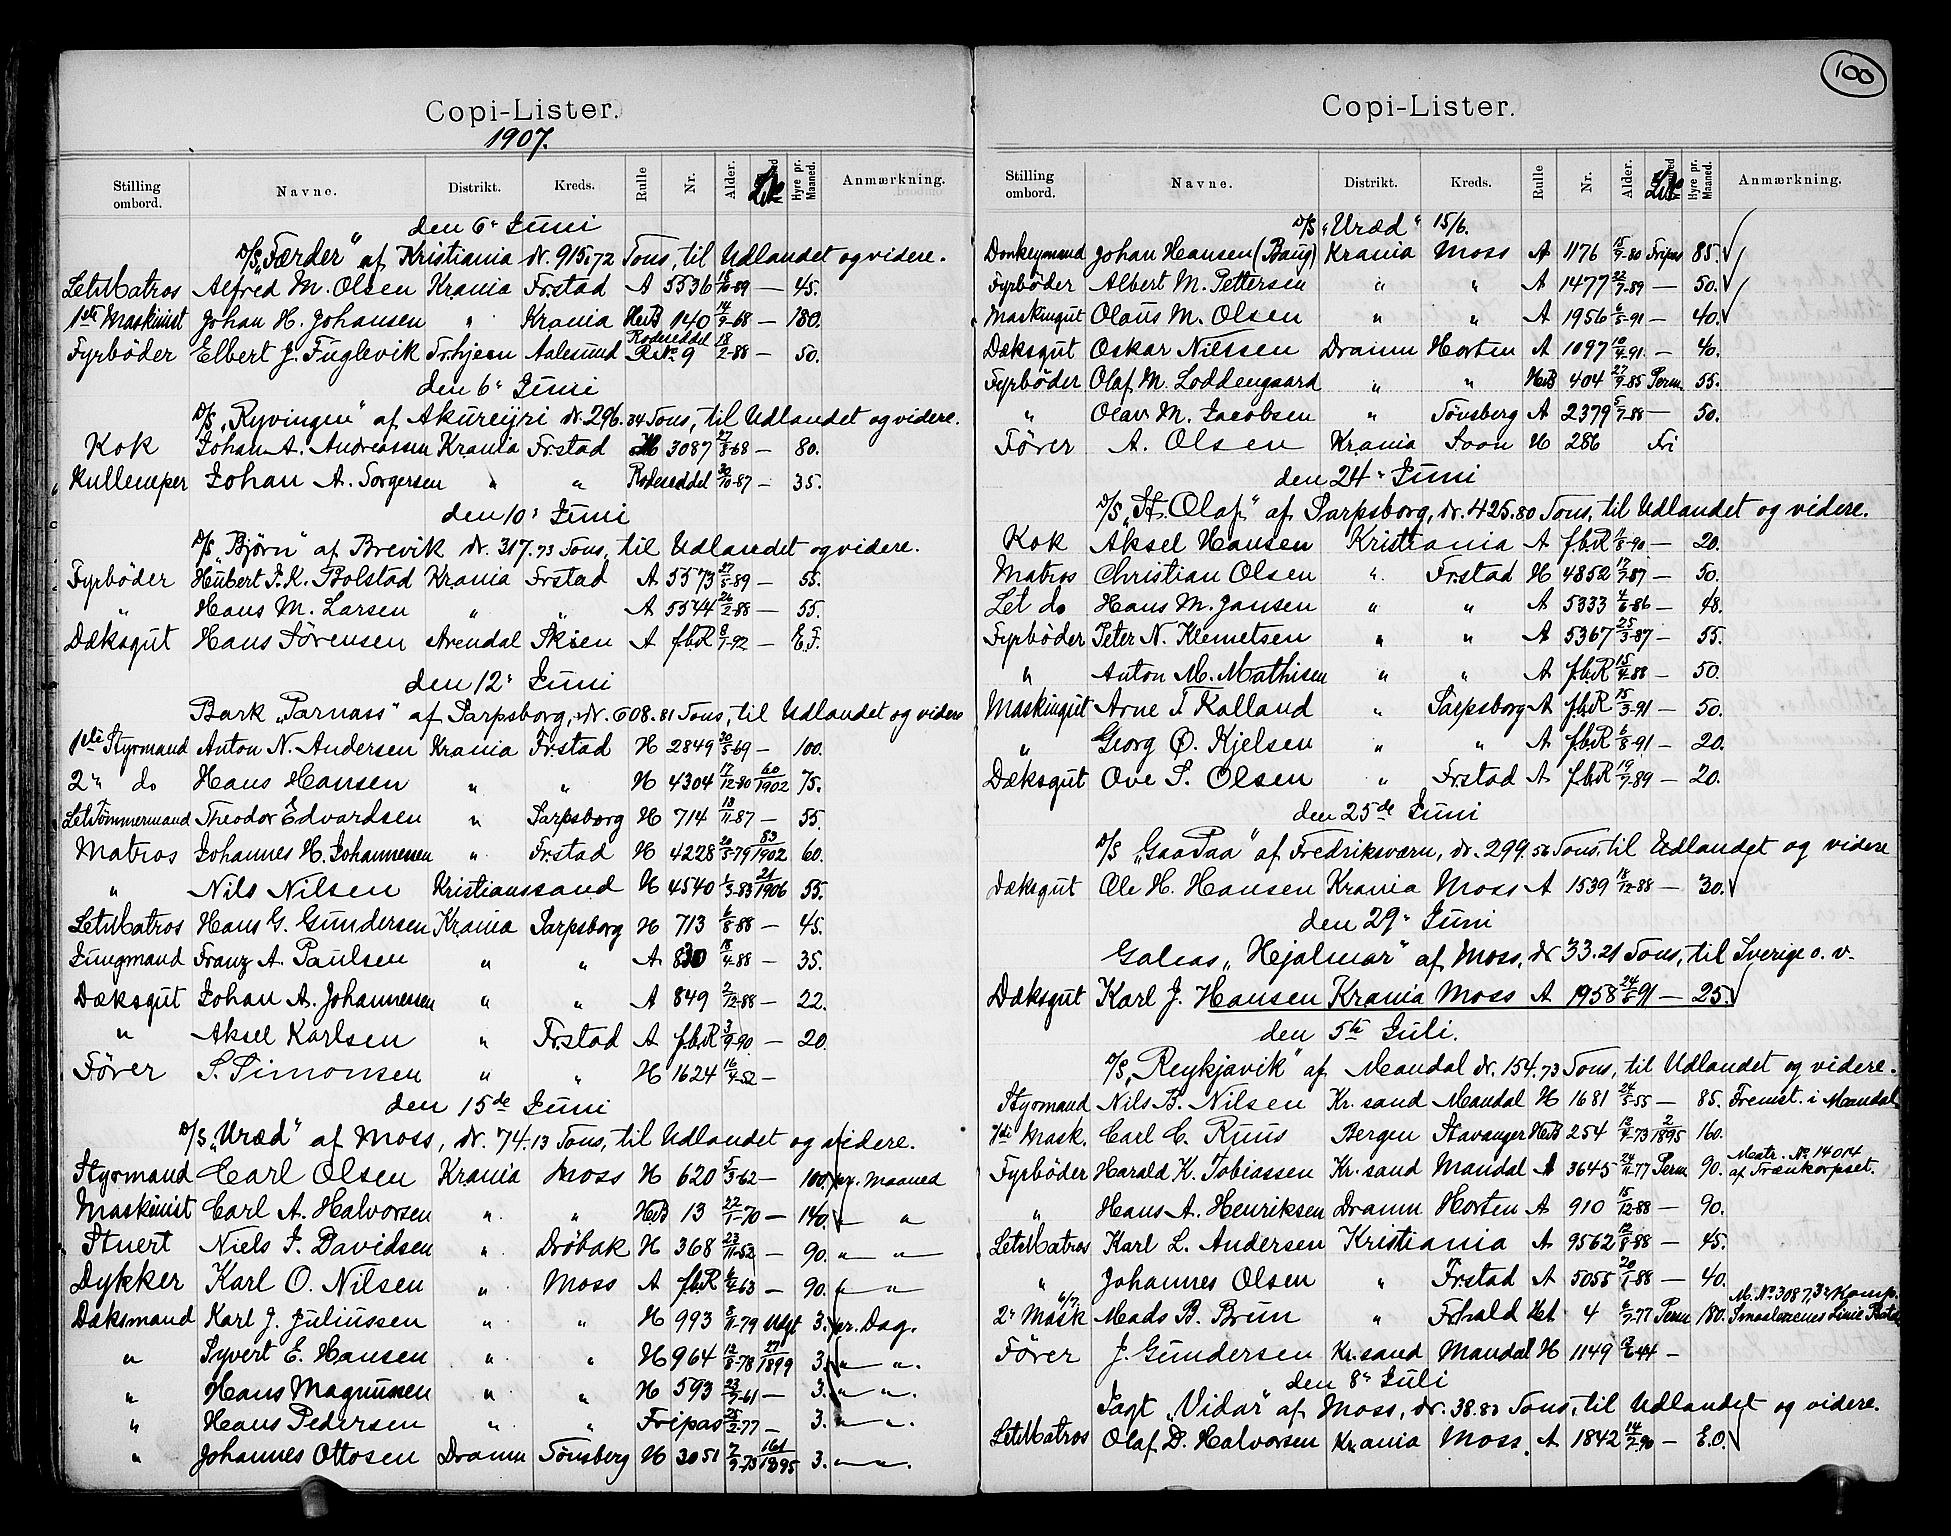 Copi-Lister.
1907.
Stilling ombord. Navne. Distrikt. Kreds. Rulle Nr. Alder. Hyre pr. Maaned. Anmærkning.
den 6" Juni
D/S „Færder" af Kristiania dr. 915.72 Tons, til Udlandet og videre.
LetMatros Alfred M. Olsen Krania Frstad A 5536 18/10-89 — 45.
1ste Maskinist Johan H. Johansen " Krania HeB 140 14/9-68 — 180.
Fyrbøder Elbert J. Fuglevik Trhjem Aalesund Rodeseddel R.No 9 18/2-88 — 50.
den 6" Juni
D/S „Ryvingen" af Akureyri dr. 296.34 Tons, til Udlandet og videre.
Kok Johan A. Andreassen Krania Frstad H 3087 27/8-68 — 80.
Kullemper Johan A. Torgersen " " Rodeseddel 30/10-87 — 35.
den 10" Juni
D/S „Bjørn" af Brevik dr. 317.73 Tons, til Udlandet og videre.
Fyrbøder Hubert J. K. Bolstad Krania Frstad A 5573 27/5-89 — 55.
" Hans M. Larsen " " A 5544 26/2-88 — 55.
Dæksgut Hans Sørensen Arendal Skien A f.b.R 8/7-92 — E.F.
den 12" Juni
Bark „Parnass" af Sarpsborg, dr. 608.81 Tons, til Udlandet og videre
1ste Styrmand Anton N. Andersen Krania Frstad H 2849 20/5-69 — 100.
2" do Hans Hansen " " H 4304 17/12-80 60/1902 75.
LetTømmermand Theodor Edvardsen " Sarpsborg H 714 13/11-87 — 55.
Matros Johannes H. Johannesen " Frstad H 4228 20/5-79 83/1902 60.
" Nils Nilsen Kristianssand H 4540 1/3-83 21/1906 55.
LetMatros Hans G. Gundersen Krania Sarpsborg H 713 6/8-88 — 45.
Jungmand Franz A. Paulsen " " A 830 18/4-88 — 35.
Dæksgut Johan A. Johannesen " " A 849 2/12-88 — 22.
" Aksel Karlsen " Frstad A f.b.R 3/9-90 — 20.
Fører S. Simonsen " " H 1624 16/4-52 —
den 15de Juni
D/S „Uræd" af Moss, dr. 74.13 Tons, til Udlandet og videre.
Styrmand Carl Olsen Krania Moss H 620 5/3-62 — 100. pr. Maaned
Maskinist Carl A. Halvorsen " " HeB 13 22/1-70 — 140. — " —
Stuert Niels J. Davidsen " Drøbak H 368 23/11-52 — 90. " "
Dykker Karl O. Nilsen " Moss A f.b.R 6/2-63 — 90. — " —
Dæksmand Karl J. Juliussen " " H 993 8/11-79 Udgt 3. pr. Dag.
" Syvert E. Hansen " " H 964 12/8-78 27/1899 3. — " —
" Hans Magnussen " " H 593 23/7-61 — 3. — " —
" Hans Pedersen " " Fripas 25/2-77 — 3. — " —
" Johannes Ottosen Dramn Tønsberg H 3051 7/9-73 161/1895 3. — " —
100
Copi-Lister.
Stilling ombord. Navne. Distrikt. Kreds. Rulle Nr. Alder. Hyre pr. Maaned. Anmærkning.
D/S „Uræd" 15/6.
Donkeymand Johan Hansen (Baug) Krania Moss A 1176 15/9-80 Fripas 85.
Fyrbøder Albert M. Pettersen " " A 1477 22/7-89 — 50.
Maskingut Olaus M. Olsen " " A 1956 6/5-91 — 40.
Dæksgut Oskar Nilssen Dramn Horten A 1097 10/4-91 — 40.
Fyrbøder Olaf M. Loddengaard " " HeB 404 27/9-85 Perm. 55.
" Olav M. Jacobsen " Tønsberg A 2379 5/7-88 — 50.
Fører A. Olsen Krania Svon H 286 Fri
den 24" Juni
D/S „St. Olaf" af Sarpsborg, dr. 425.80 Tons, til Udlandet og videre.
Kok Aksel Hansen Kristiania A f.b.R 1/8-90 — 20.
Matros Christian Olsen " Frstad H 4852 17/7-87 — 50.
Let do Hans M. Jansen " " A 5333 4/6-86 — 48.
Fyrbøder Peter N. Klemetsen " " A 5367 25/3-87 — 55.
" Anton M. Mathisen " " A f.b.R 15/4-88 — 50.
Maskingut Arne T Kolland " Sarpsborg A f.b.R 15/3-91 — 50.
" Georg Ø. Kjelsen " " A f.b.R 6/8-91 — 20.
Dæksgut Ove S. Olsen " Frstad A f.b.R 19/7-89 — 20.
den 25de Juni
D/S „GaaPaa" af Fredriksværn, dr. 299.56 Tons, til Udlandet og videre
Dæksgut Ole H. Hansen Krania Moss A 1539 18/12-88 — 30.
den 29" Juni
Galeas „Hjalmar" af Moss, dr 33.21 Tons, til Sverige o. v.
Dæksgut Karl J. Hansen Krania Moss A 1958 24/5-91 — 25.
den 5te Juli.
D/S „Reykjavik" af Mandal dr. 154.73 Tons, til Udlandet og videre.
Styrmand Nils B. Nilsen Kr.sand Mandal H 1681 24/5-55 — 85. Fremst. i Mandal
1ste Mask. Carl C. Ruus Bergen Stavanger HeB 254 13/4-73 2/1895 160.
Fyrbøder Harald K. Tobiassen Kr.sand Mandal A 3645 24/11-77 Perm 90. Matr. No. 14014 af Trænkorpset.
" Hans A. Henriksen Dramn Horten A 910 15/12-88 — 90.
LetMatros Karl L. Andersen Kristiania A 9562 12/8-88 — 45.
" Johannes Olsen " Frstad A 5055 20/1-88 — 40.
2" Mask 6/7 Mads B. Brun " Frhald Het 4 6/7-77 Perm 180. M. No 3087, 3" Komp. Smaalenenes Linie Bat.
Fører J. Gundersen Kr.sand Mandal H 1149 9/2-44 —
den 8" Juli
Jagt „Vidar" af Moss, dr. 38.83 Tons, til Udlandet og videre.
LetMatros Olaf D. Halvorsen Krania Moss. A 1842 14/7-90 — E.O.